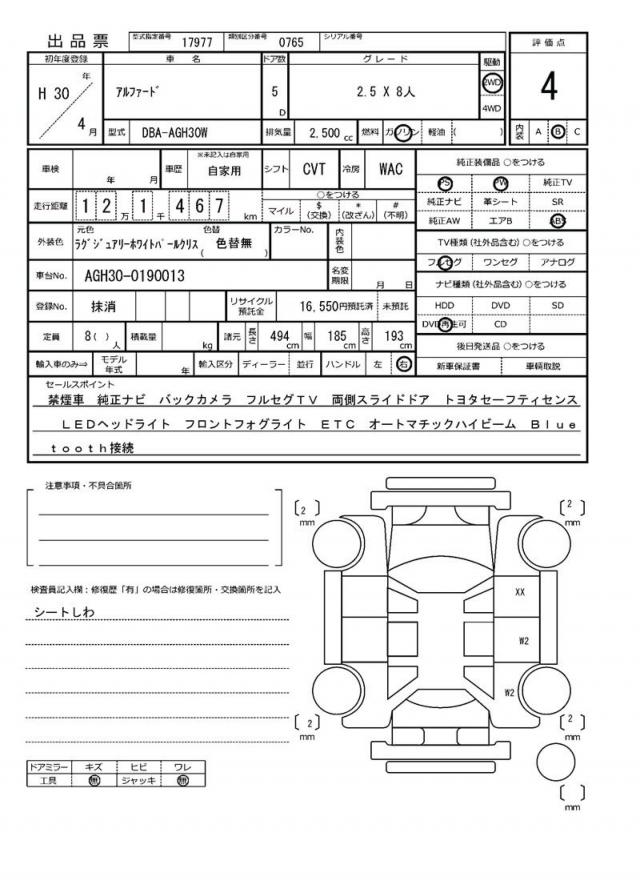 出品票 型式指定番号 17977 類別区分番号 0765 シリアル番号
評価点
4
内装 A B C
初年度登録 車名 ドア数 グレード 駆動
H 30 年 4 月
アルファード 5 D 2.5 X 8人 2WD
4WD
型式 DBA-AGH30W 排気量 2,500 cc 燃料 ガソリン 軽油 ( )
車検 年 月 車歴 ※未記入は自家用 自家用 シフト CVT 冷房 WAC
走行距離 1 2 万 1 千 4 6 7 km
○をつける
マイル $ (交換) * (改ざん) # (不明)
外装色 元色 色替 カラーNo. 内装色
ラグジュアリーホワイトパールクリス ( 色替無 )
車台No. AGH30-0190013 名変期限 月 日
登録No. 抹消 リサイクル預託金 16,550円預託済 未預託
定員 8( ) 人 積載量 kg 諸元 長さ 494 cm 幅 185 cm 高さ 193 cm
輸入車のみ⇒ モデル年式 年 輸入区分 ディーラー 並行 ハンドル 左 右
純正装備品 ○をつける
PS PW 純正TV
純正ナビ 革シート SR
純正AW エアB ABS
TV種類(社外品含む)○をつける
フルセグ ワンセグ アナログ
ナビ種類(社外品含む)○をつける
HDD DVD SD
DVD再生可 CD
後日発送品 ○をつける
新車保証書 車輌取説
セールスポイント
禁煙車 純正ナビ バックカメラ フルセグTV 両側スライドドア トヨタセーフティセンス
LEDヘッドライト フロントフォグライト ETC オートマチックハイビーム Blue
tooth接続
注意事項・不具合箇所
検査員記入欄:修復歴「有」の場合は修復箇所・交換箇所を記入
シートしわ
ドアミラー キズ ヒビ ワレ
工具 無 ジャッキ 無
[ 2 ] mm
[ 2 ] mm
XX
W2
W2
[ 2 ] mm
[ 2 ] mm
[ ] mm